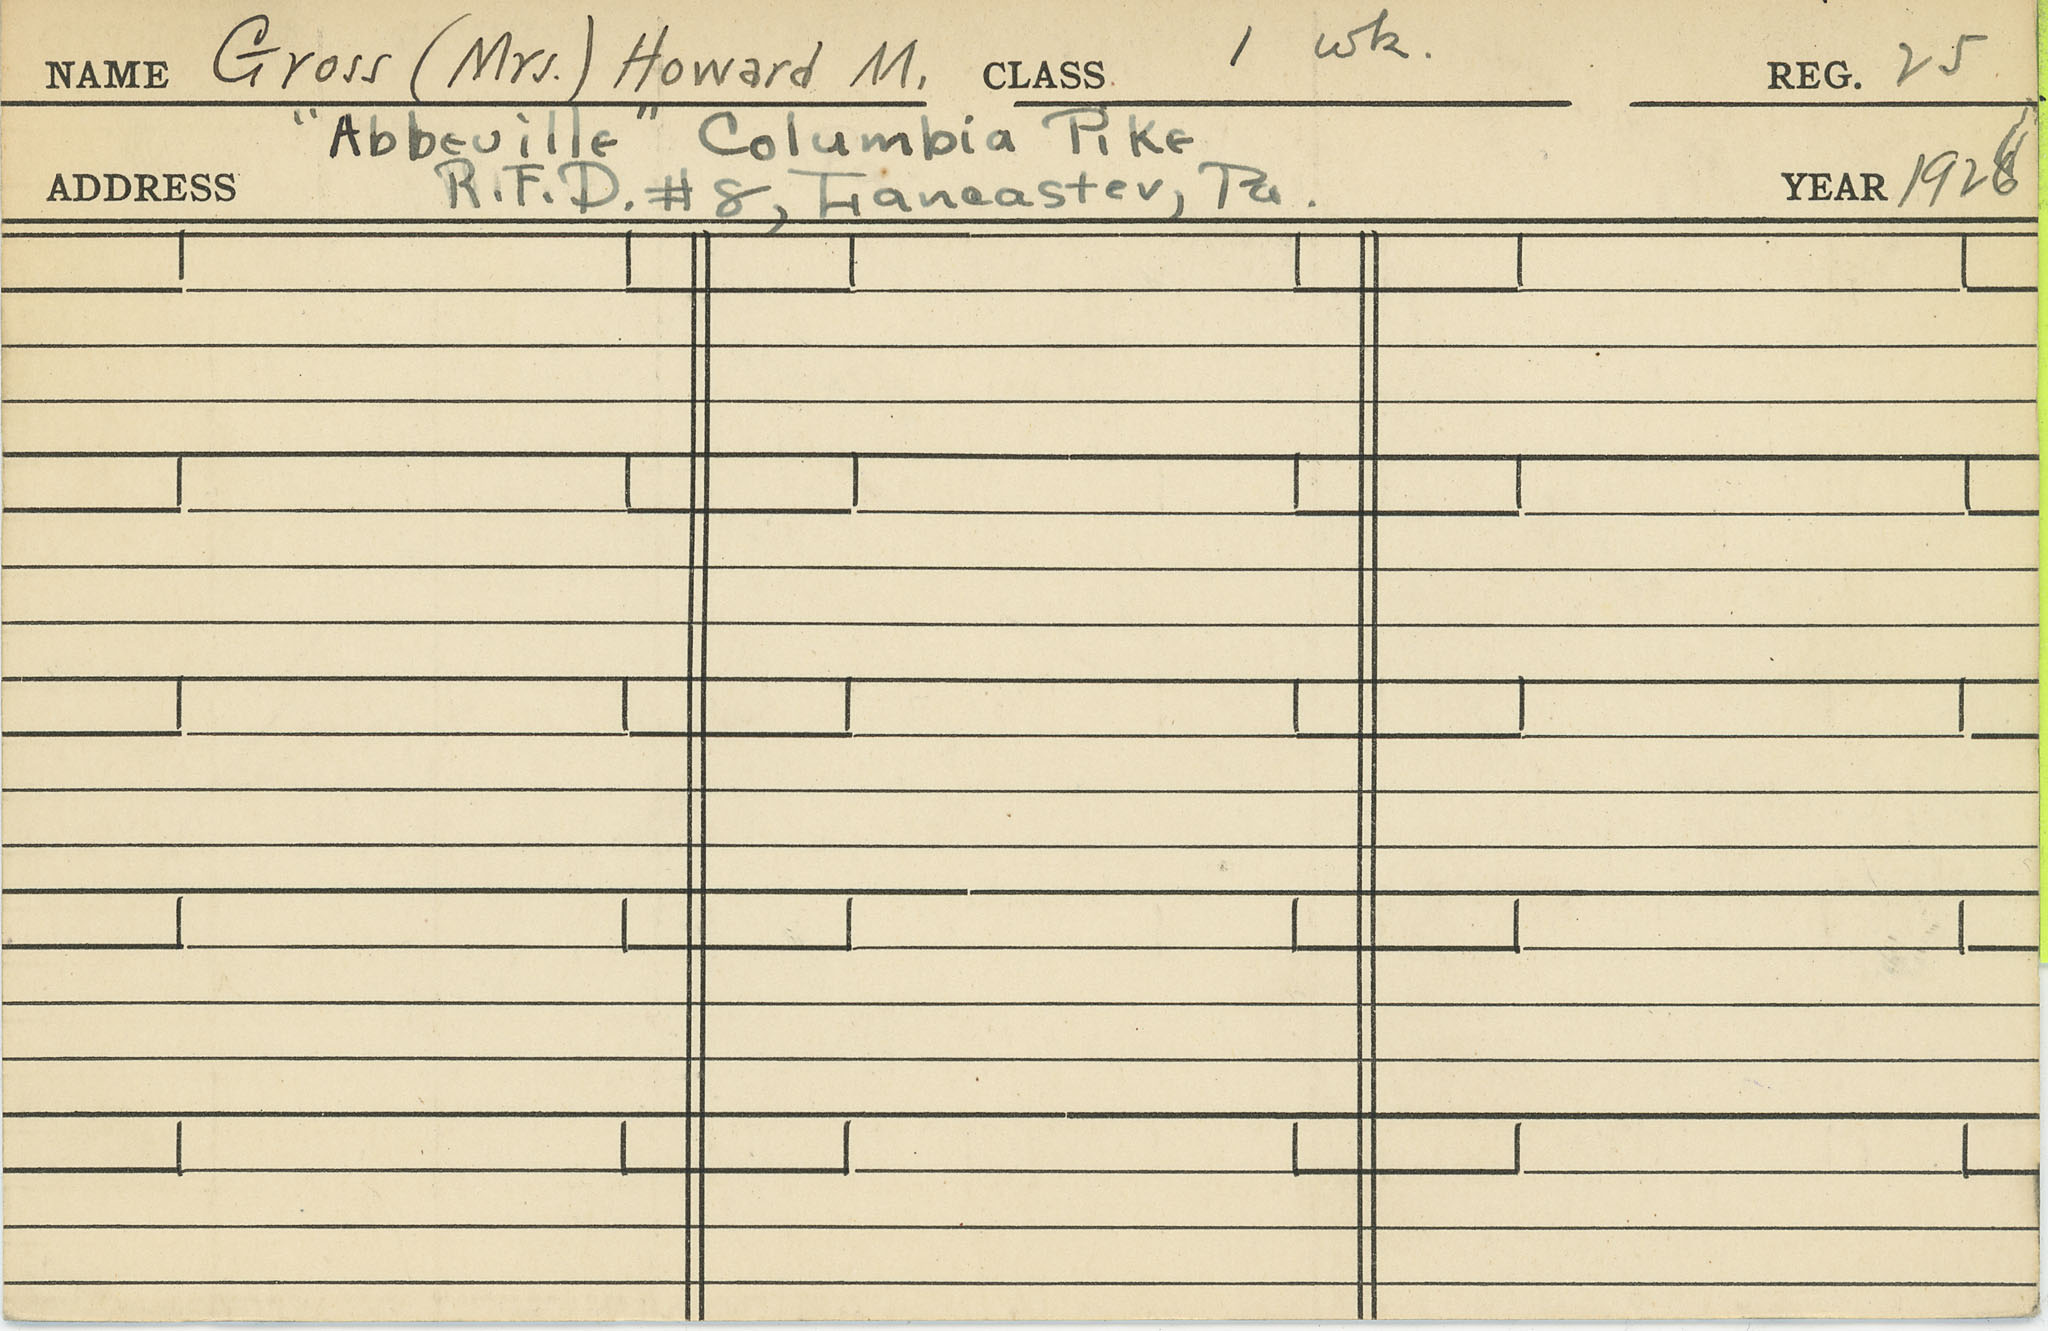 NAME Gross (Mrs.) Howard M. CLASS 1 wk. REG. 25
"Abbeville" Columbia Pike
ADDRESS R.F.D. #8, Lancaster, Pa. YEAR